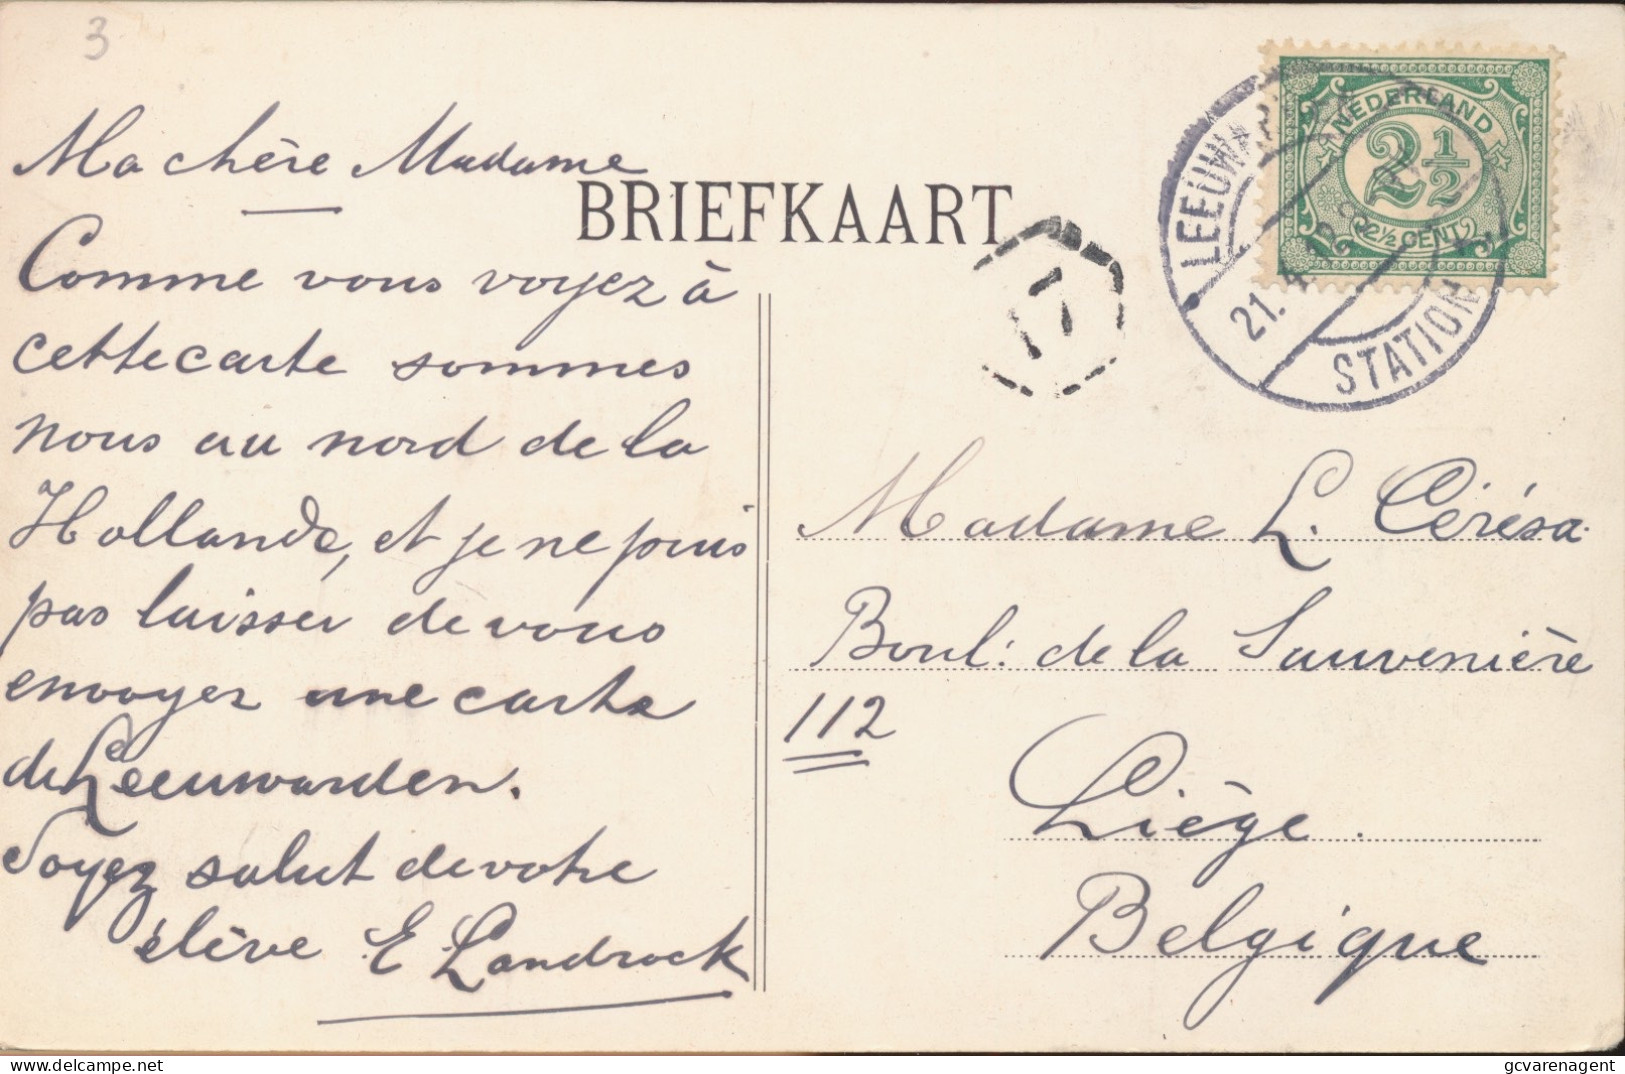 3
Ma chère Madame
BRIEFKAART
Comme vous voyez à
cette carte sommes
nous au nord de la
Hollande, et je ne puis
pas laisser de vous
envoyer une carte
de Leeuwarden.
Soyez salut de votre
élève E Landrock
NEDERLAND
2½
2½ CENT
LEEUWA
21.
STATION
Madame L. Cérésa.
Boul: de la Sauvenière
112
Liège.
Belgique
delcampe.net
gcvarenagent